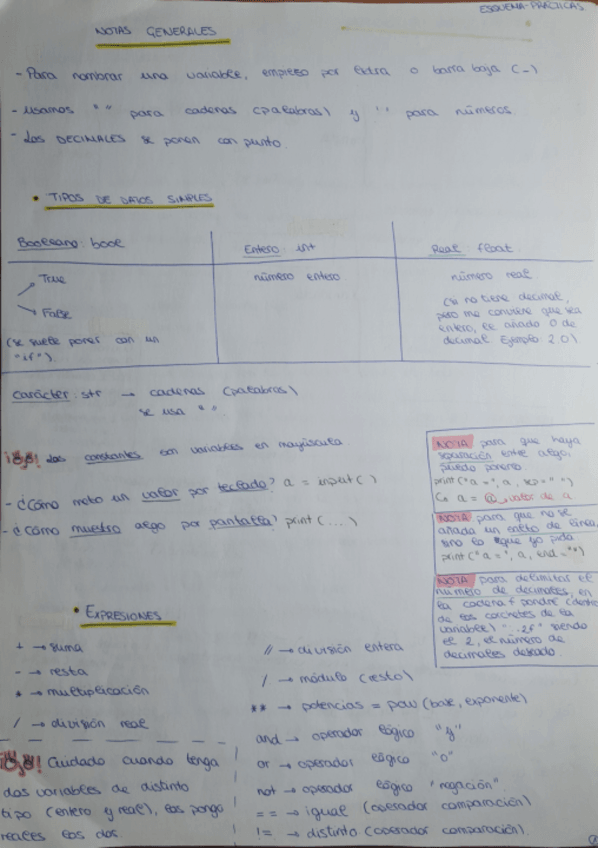 ESQUEMA-PRÁCTICAS
NOTAS GENERALES
- Para nombrar una variable, empiezo por letra o barra baja (_)
- usamos " " para cadenas (palabras) y ' ' para números.
- Los DECIMALES se ponen con punto.
• TIPOS DE DATOS SIMPLES
Booleano: bool
True
False
(se suele poner con un
"if").
Entero: int
número entero
Real: float.
número real.
(si no tiene decimal,
pero me conviene que sea
entero, le añado 0 de
decimal. Ejemplo: 2.0)
Carácter: str → cadenas (palabras)
se usa " ".
Las constantes son variables en mayúscula
- ¿Cómo meto un valor por teclado? a = input()
- ¿Cómo muestro algo por pantalla? print(...)
NOTA para que haya
separación entre algo,
puedo ponerlo
print("a =", a, sep=" ")
a = valor de a
NOTA para que no se
añada un salto de línea,
sino lo que yo pida
print("a =", a, end="")
NOTA para delimitar el
número de decimales, en
la cadena f pondré (dentro
de los corchetes de la
variable) ":.2f" siendo
el 2, el número de
decimales deseado.
• EXPRESIONES
+ → suma
- → resta
* → multiplicación
/ → división real
Cuidado cuando tenga
dos variables de distinto
tipo (entero y real), las pongo
reales las dos.
// → división entera
/ → módulo (resto)
** → potencias = pow (base, exponente)
and → operador lógico "y"
or → operador lógico "o"
not → operador lógico "negación".
== → igual (operador comparación)
!= → distinto (operador comparación).